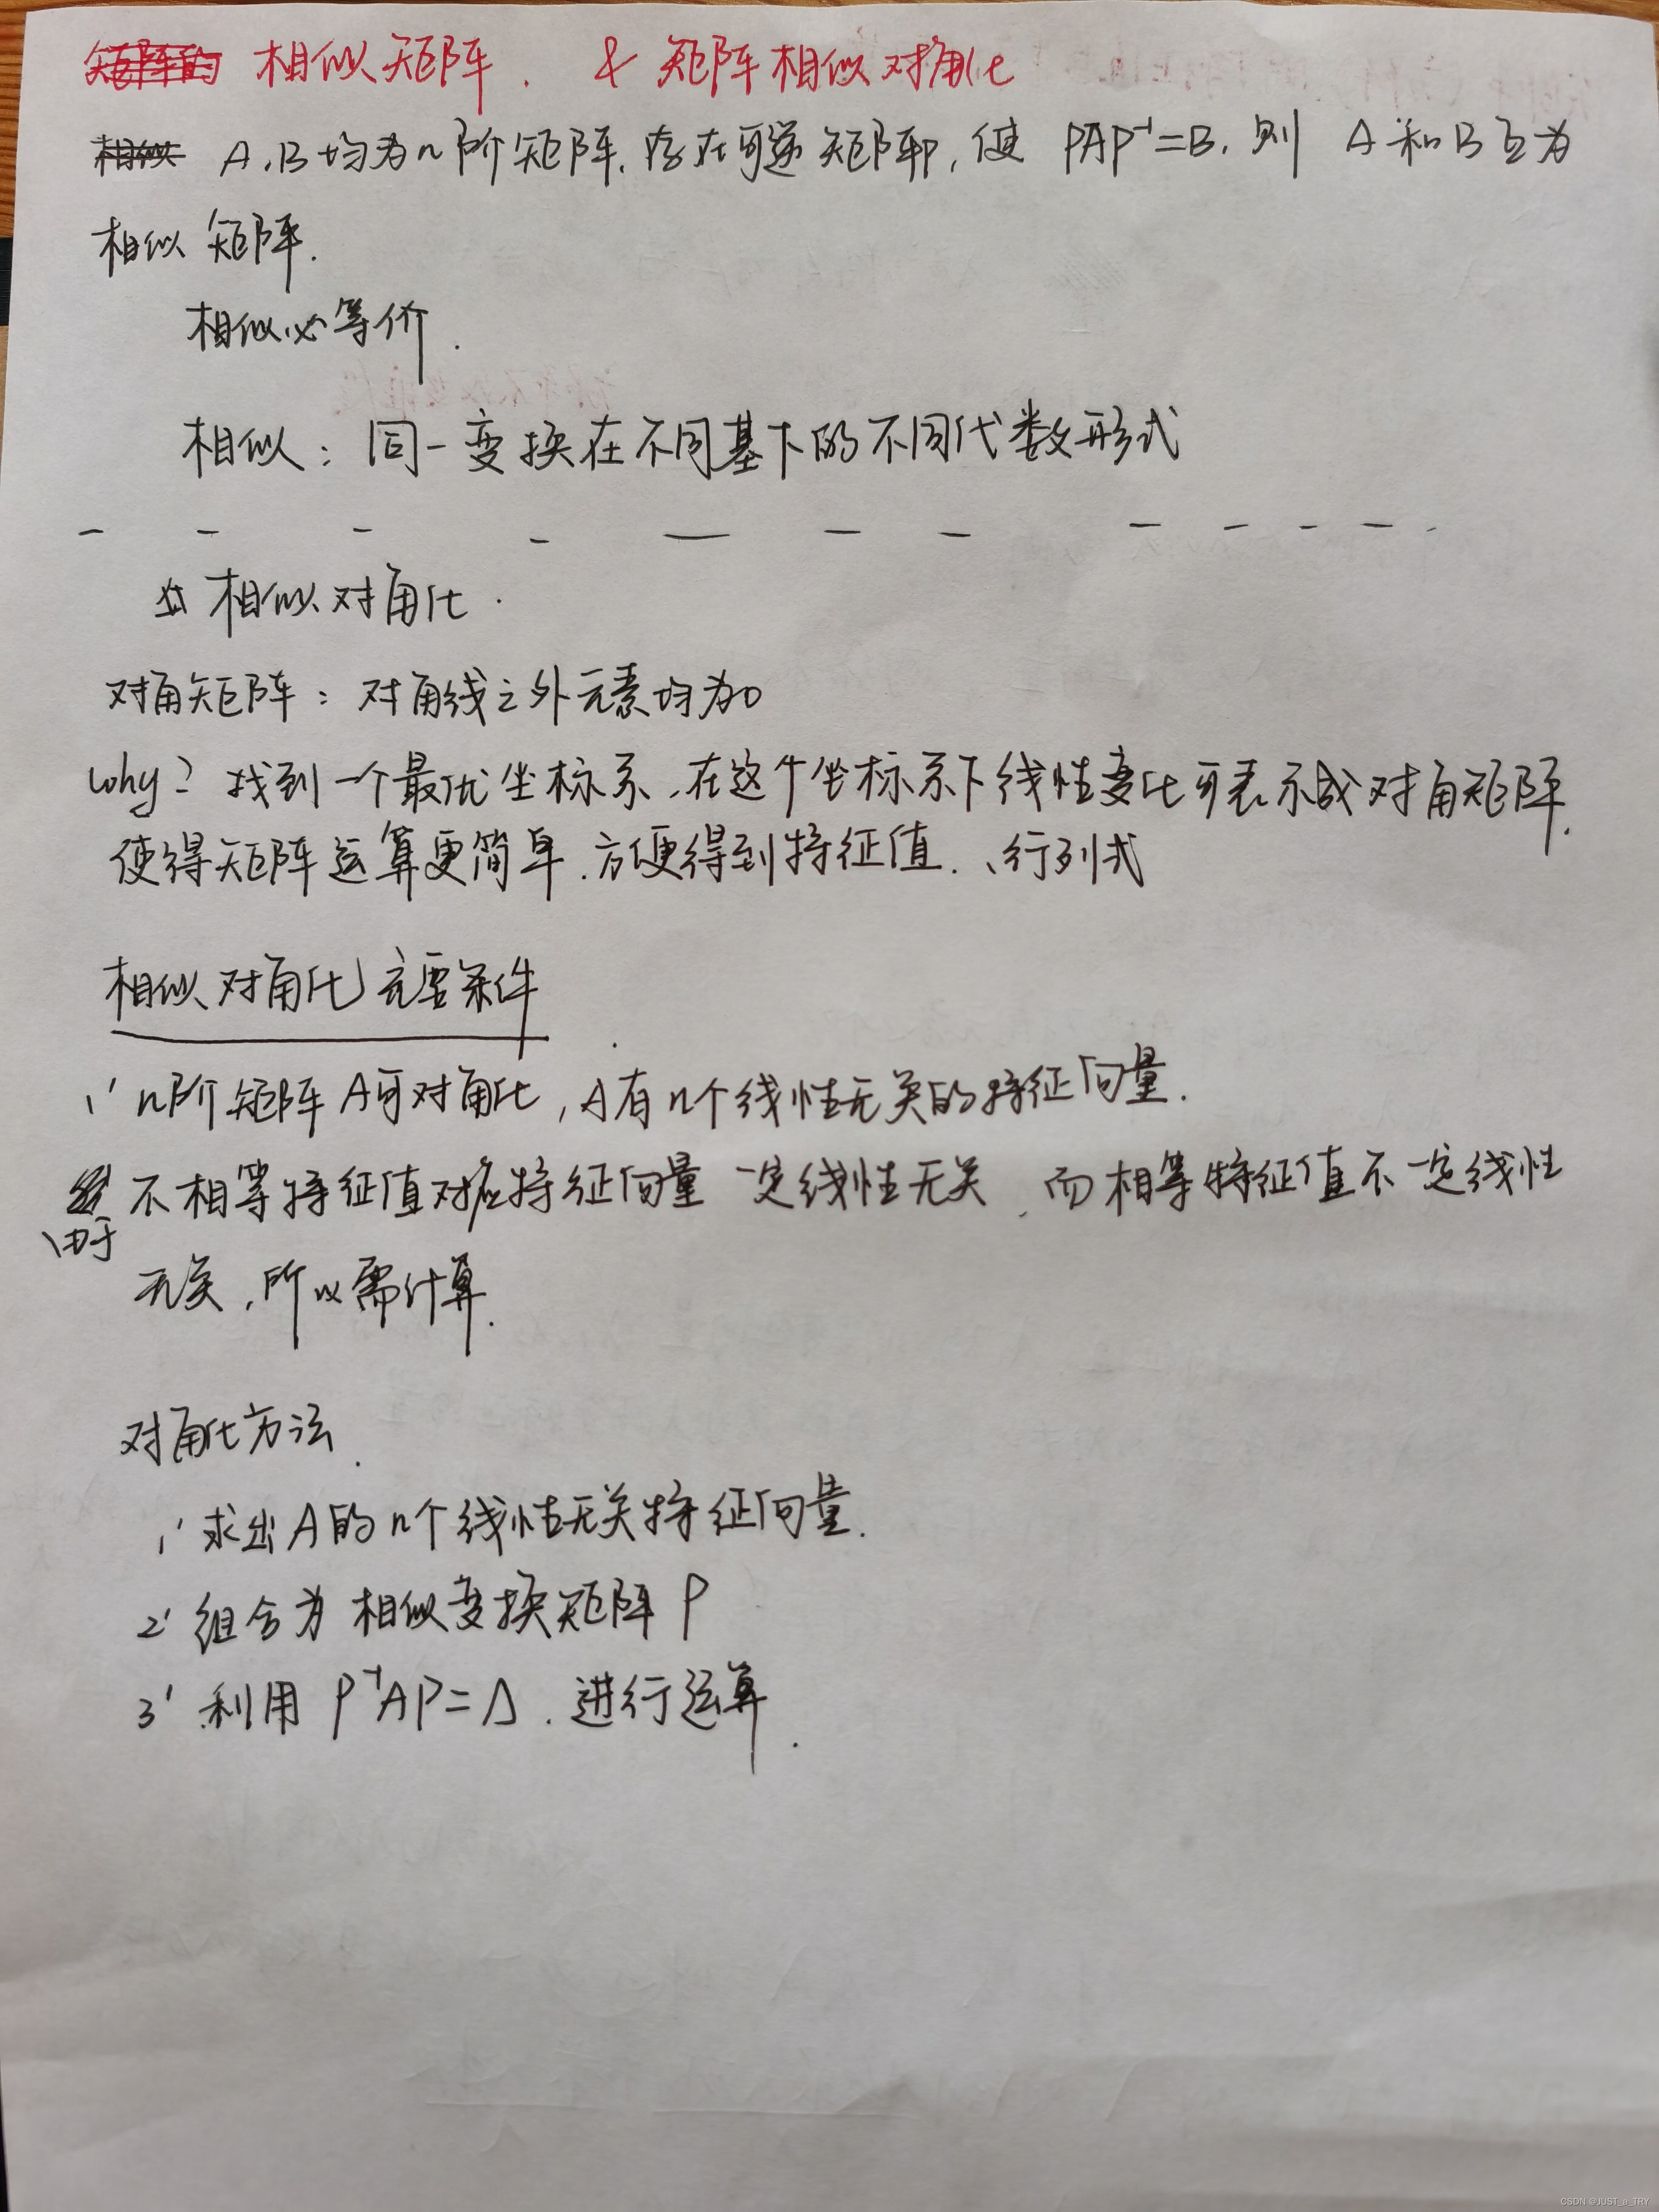 相似矩阵. & 矩阵相似对角化
A.B均为n阶矩阵.存在可逆矩阵P,使 PAP⁻¹=B.则 A和B互为
相似矩阵.
相似必等价.
相似:同一变换在不同基下的不同代数形式
相似对角化.
对角矩阵:对角线之外元素均为0
why? 找到一个最优坐标系.在这个坐标系下线性变化可表示成对角矩阵.
使得矩阵运算更简单.方便得到特征值.、行列式
相似对角化充要条件
1' n阶矩阵A可对角化,A有n个线性无关的特征向量.
由于 不相等特征值对应特征向量一定线性无关.而相等特征值不一定线性
无关,所以需计算.
对角化方法.
1' 求出A的n个线性无关特征向量.
2' 组合为相似变换矩阵P
3' 利用 P⁻¹AP=Λ.进行运算.
CSDN @JUST_a_TRY